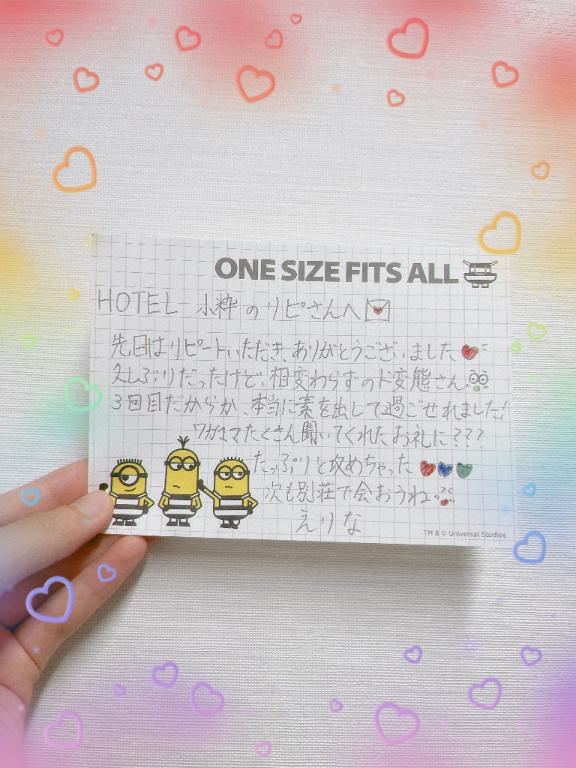 ONE SIZE FITS ALL
HOTEL 小粋のリピさんへ
先日はリピートいただき、ありがとうございました
久しぶりだったけど、相変わらずのド変態さん
3回目だからか、本当に素を出して過ごせれました!
ワガママたくさん聞いてくれたお礼に???
たっぷりと攻めちゃった
次も別荘で会おうね
えりな
TM & © Universal Studios